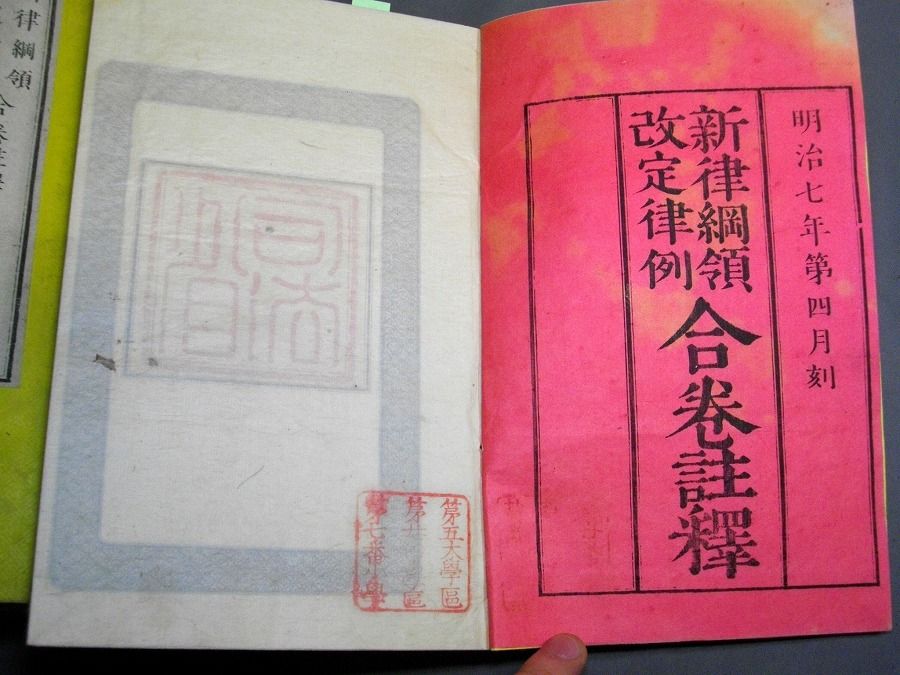 明治七年第四月刻
新律綱領
改定律例
合巻註釋
第五大學區
第七番小學
律綱領